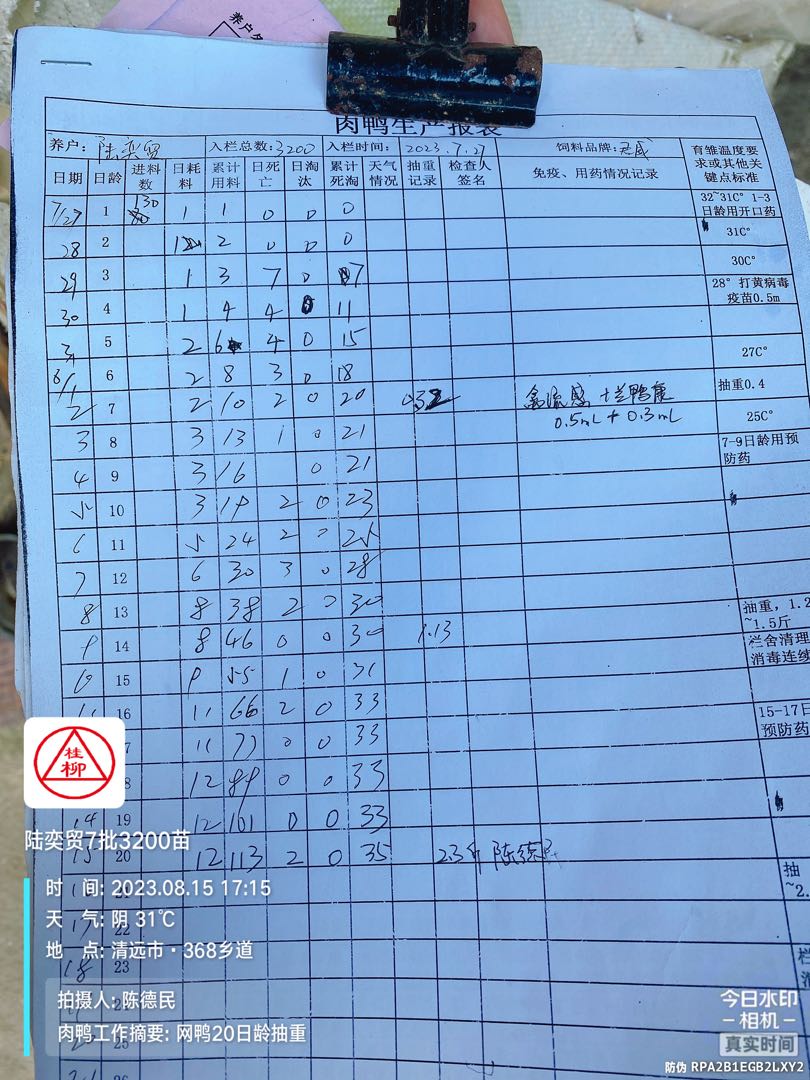 肉鸭生产报表
养户: 陆奕贸 入栏总数:3200 入栏时间: 2023.7.27 饲料品牌: 育雏温度要求或其他关键点标准
日期 日龄 进料数 日耗料 累计用料 日死亡 日淘汰 累计死淘 天气情况 抽重记录 检查人签名 免疫、用药情况记录
7/27 1 130 1 1 0 0 0 32~31C° 1-3日龄用开口药
28 2 1 2 0 0 0 31C°
29 3 1 3 7 0 7 30C°
30 4 1 4 4 0 11 28° 打黄病毒疫苗0.5m
31 5 2 6 4 0 15 27C°
8/1 6 2 8 3 0 18 抽重0.4
2 7 2 10 2 0 20 0.32 禽流感 + 0.5mL + 0.3mL 25C°
3 8 3 13 1 0 21 7-9日龄用预防药
4 9 3 16 0 21
5 10 3 19 2 0 23
6 11 5 24 2 0 25
7 12 6 30 3 0 28
8 13 8 38 2 0 30 抽重，1.2~1.5斤
9 14 8 46 0 0 30 1.13 栏舍清理消毒连续
10 15 9 55 1 0 31
11 16 11 66 2 0 33 15-17日预防药
11 77 0 0 33
8 12 89 0 0 33
14 19 12 101 0 0 33
15 20 12 113 2 0 35 2.3斤 陈德民 抽~2.
17 22
18 23
25
26
桂柳
陆奕贸7批3200苗
时 间: 2023.08.15 17:15
天 气: 阴 31℃
地 点: 清远市·368乡道
拍摄人: 陈德民
肉鸭工作摘要: 网鸭20日龄抽重
今日水印
-相机-
真实时间
防伪 RPA2B1EGB2LXY2